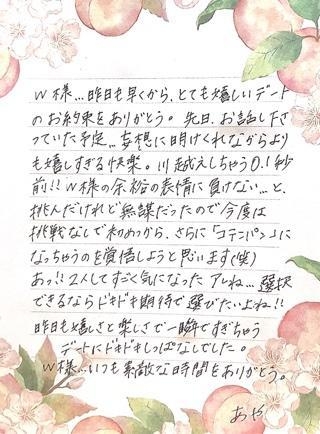 W様…昨日も早くから、とても嬉しいデート
のお約束をありがとう。先日、お話し下さ
っていた予定…妄想に明けくれながらより
も嬉しすぎる快楽。川越えしちゃう0.1秒
前!!W様の余裕の表情に負けない…と、
挑んだけれど無謀だったので今度は
挑戦なしで初めっから、さらに「コテンパン」に
なっちゃうのを覚悟しようと思います(笑)
あっ!!2人してすごく気になったアレね…選択
できるならドキドキ期待で選びたいよね!!
昨日も嬉しさと楽しさで一瞬ですぎちゃう
デートにドキドキしっぱなしでした。
W様…いつも素敵な時間をありがとう。
あや